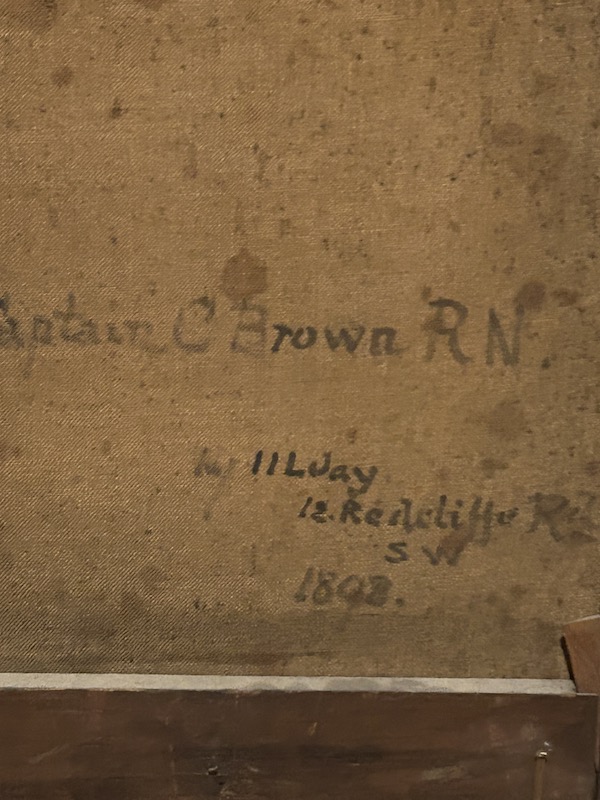 Captain C Brown RN.
by
12. Redcliffe Rd
S W
1898.